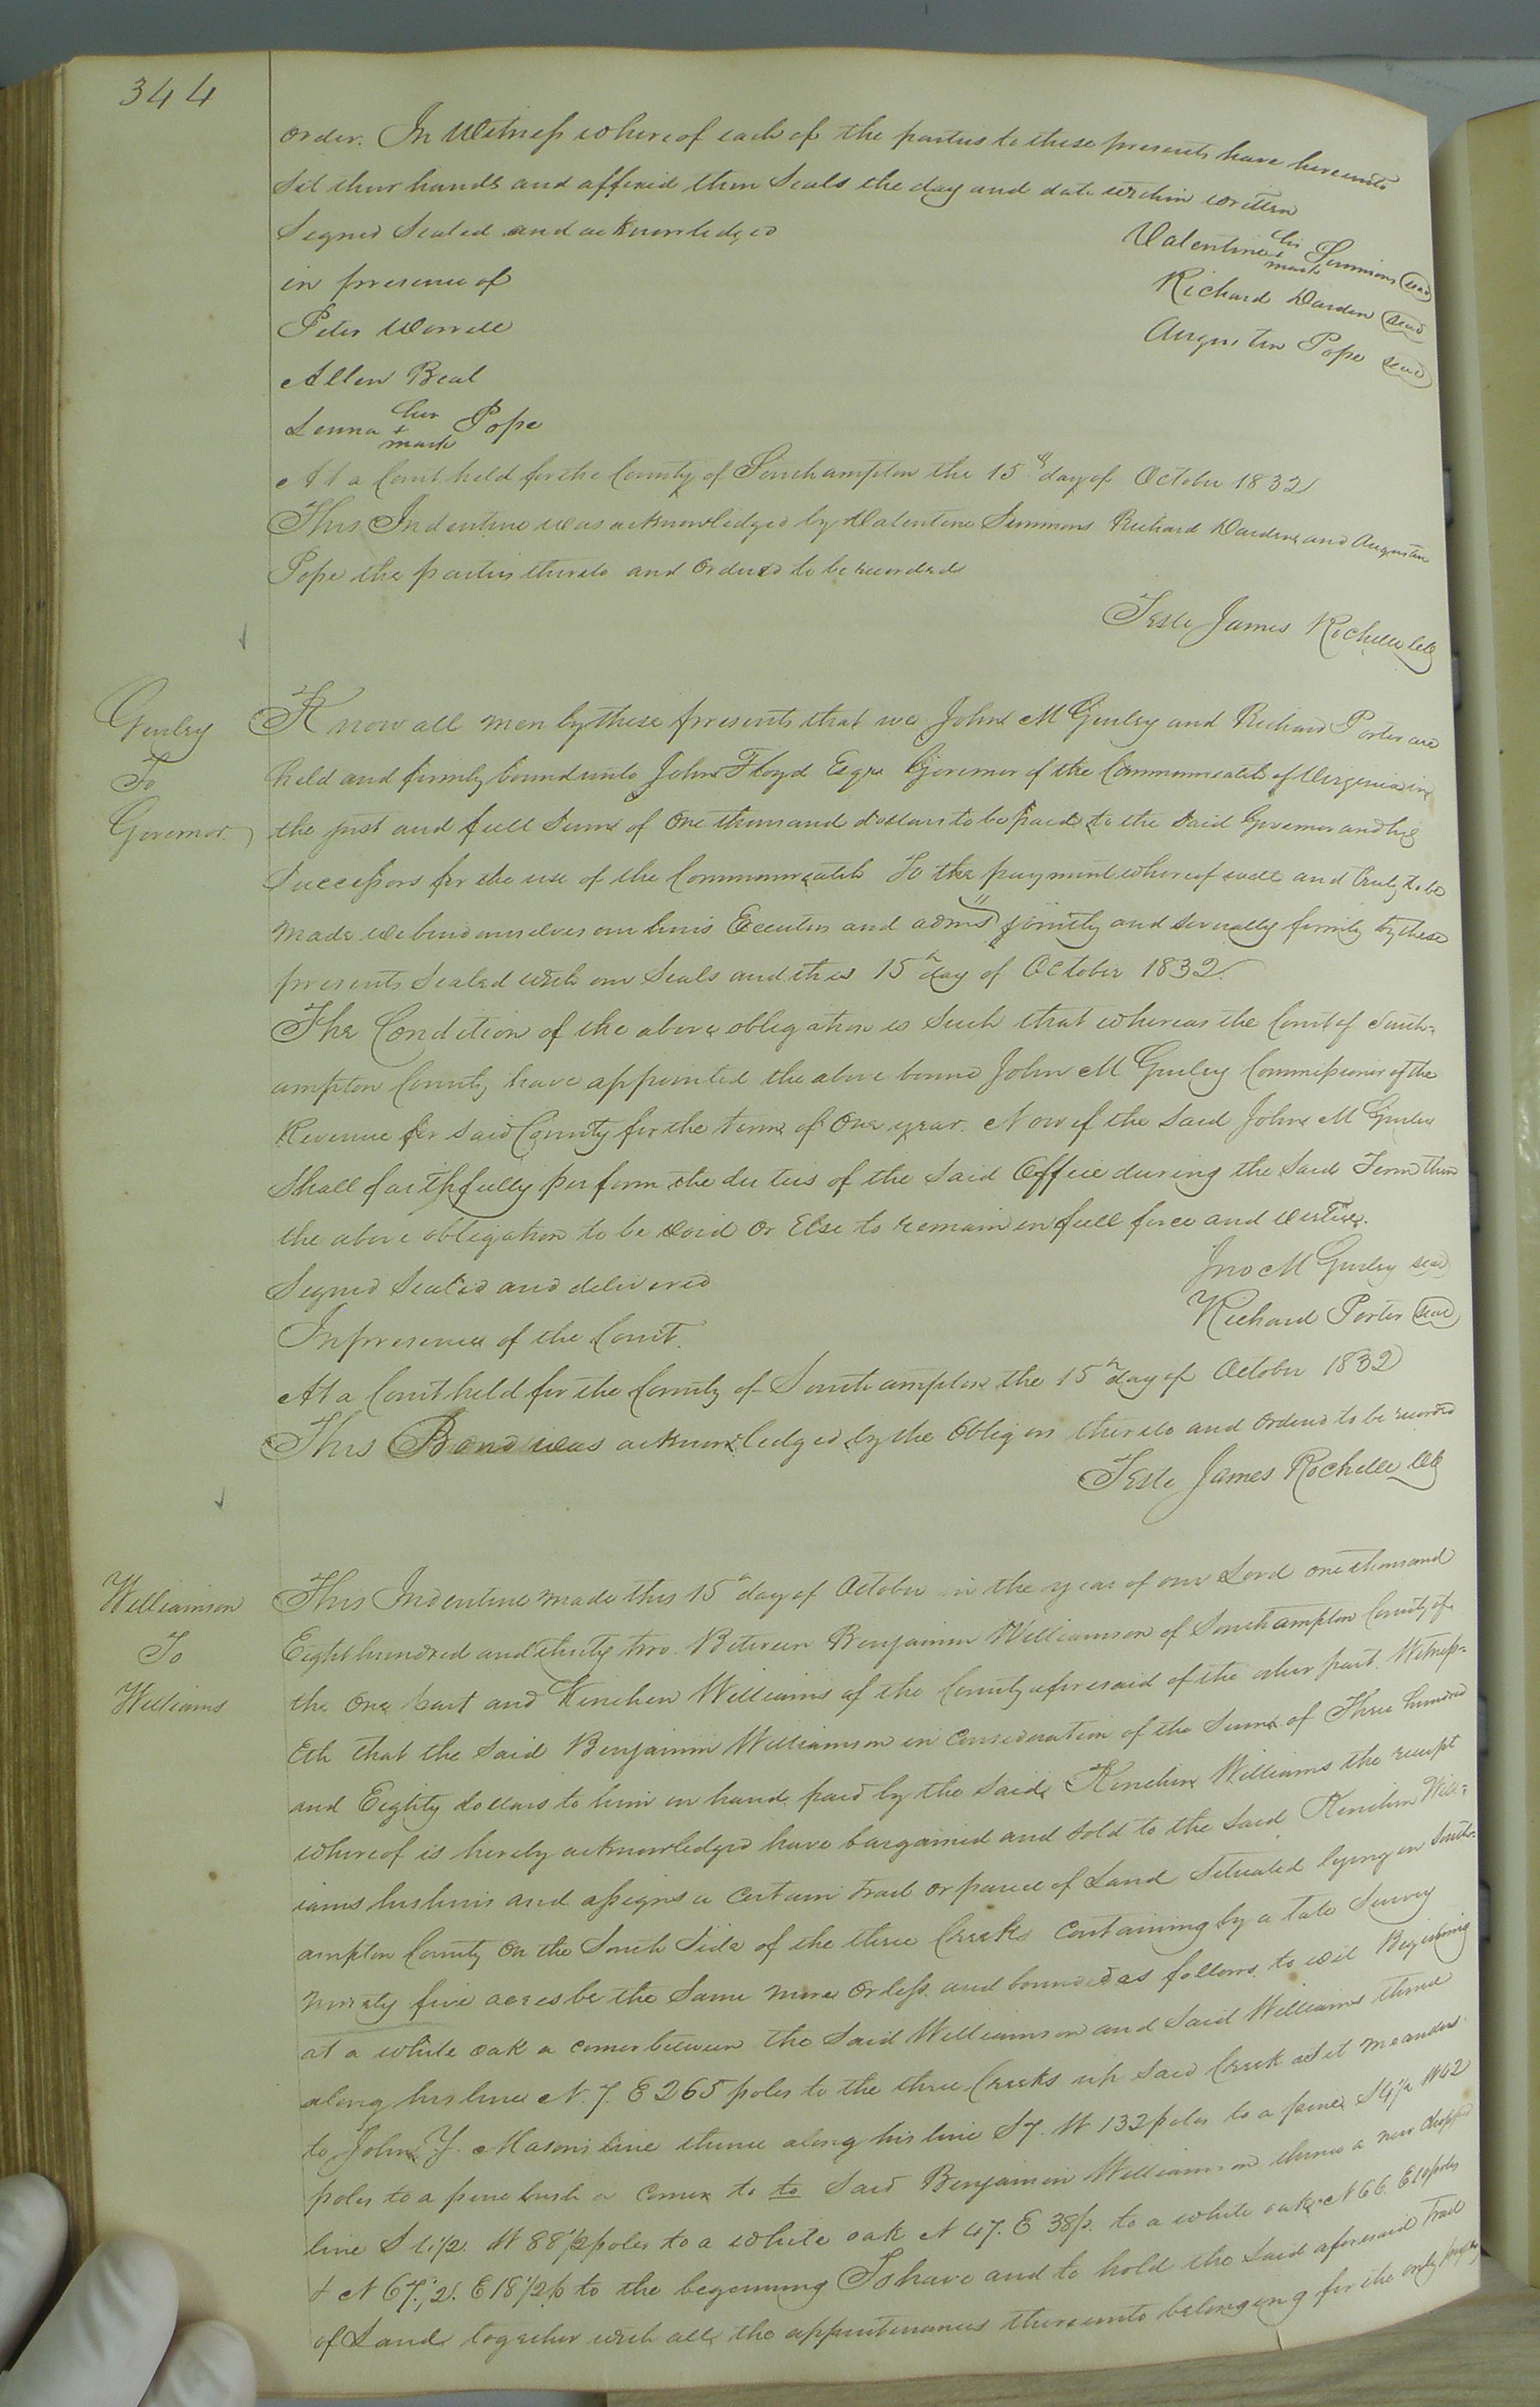 344
order. In Witness whereof each of the parties to these presents have hereunto
Set their hands and affixed their Seals the day and date within written
Signed Sealed and acknowledged
in presence of
Peter Worrell
Allen Beal
Lenna her + mark Pope
Valentine his + mark Simmons seal
Richard Darden seal
Augustin Pope seal
At a Court held for the County of Southampton the 15th day of October 1832
This Indenture was acknowledged by Valentine Simmons Richard Darden and Augustin
Pope the parties thereto and Ordered to be recorded
Teste James Rochelle Clk
Gurley
To
Governor
Know all men by these presents that we John M Gurley and Richard Porter are
held and firmly bound unto John Floyd Esqr Governor of the Commonwealth of Virginia in
the just and full Sum of One thousand dollars to be paid to the Said Governor and his
Successors for the use of the Commonwealth To the payment whereof well and truly to be
made we bind ourselves our heirs Executors and adms jointly and severally firmly by these
presents Sealed with our Seals and this 15h day of October 1832.
The Condition of the above obligation is Such that whereas the Court of South=
ampton County have appointed the above bound John M Gurley Commissioner of the
Revenue for Said County for the term of One year. Now if the Said John M Gurley
Shall faithfully perform the duties of the Said Office during the Said Term then
the above obligation to be Void or Else to remain in full force and virtue.
Signed Sealed and delivered
In presence of the Court.
Jno M Gurley seal
Richard Porter seal
At a Court held for the County of Southampton the 15h day of October 1832
This Bond was acknowledged by the Obligors thereto and Ordered to be recorded
Teste James Rochelle Clk
Williamson
To
Williams
This Indenture made this 15h day of October in the year of our Lord one thousand
Eight hundred and thirty two. Between Benjamin Williamson of Southampton County of
the One part and Kinchen Williams of the County aforesaid of the other part. Witness=
Eth that the Said Benjamin Williamson in Consideration of the Sum of Three hundred
and Eighty dollars to him in hand paid by the Said Kinchen Williams the receipt
whereof is hereby acknowledged have bargained and Sold to the Said Kinchen Will=
iams his heirs and assigns a Certain Tract or parcel of Land Situated lying in South=
ampton County On the South Side of the three Creeks Containing by a late Survey
ninety five acres be the Same more Or less. and bounded as follows. to wit Beginning
at a white oak a corner between the Said Williamson and Said Williams thence
along his line N. 7. E 265 poles to the three Creeks up Said Creek as it meanders
to John Y. Masons line thence along his line S 7. W 132 poles to a pine S 4½ W 42
poles to a pine bush a Corner to to Said Benjamin Williamson thence a new chopt
line S 1½. W 88½ poles to a white oak N 47. E 38 p. to a white oak N 66. E 10 poles
& N 67½. E 18½ p to the beginning To have and to hold the Said aforesaid Tract
of Land together with all the appurtenances thereunto belonging for the only proper